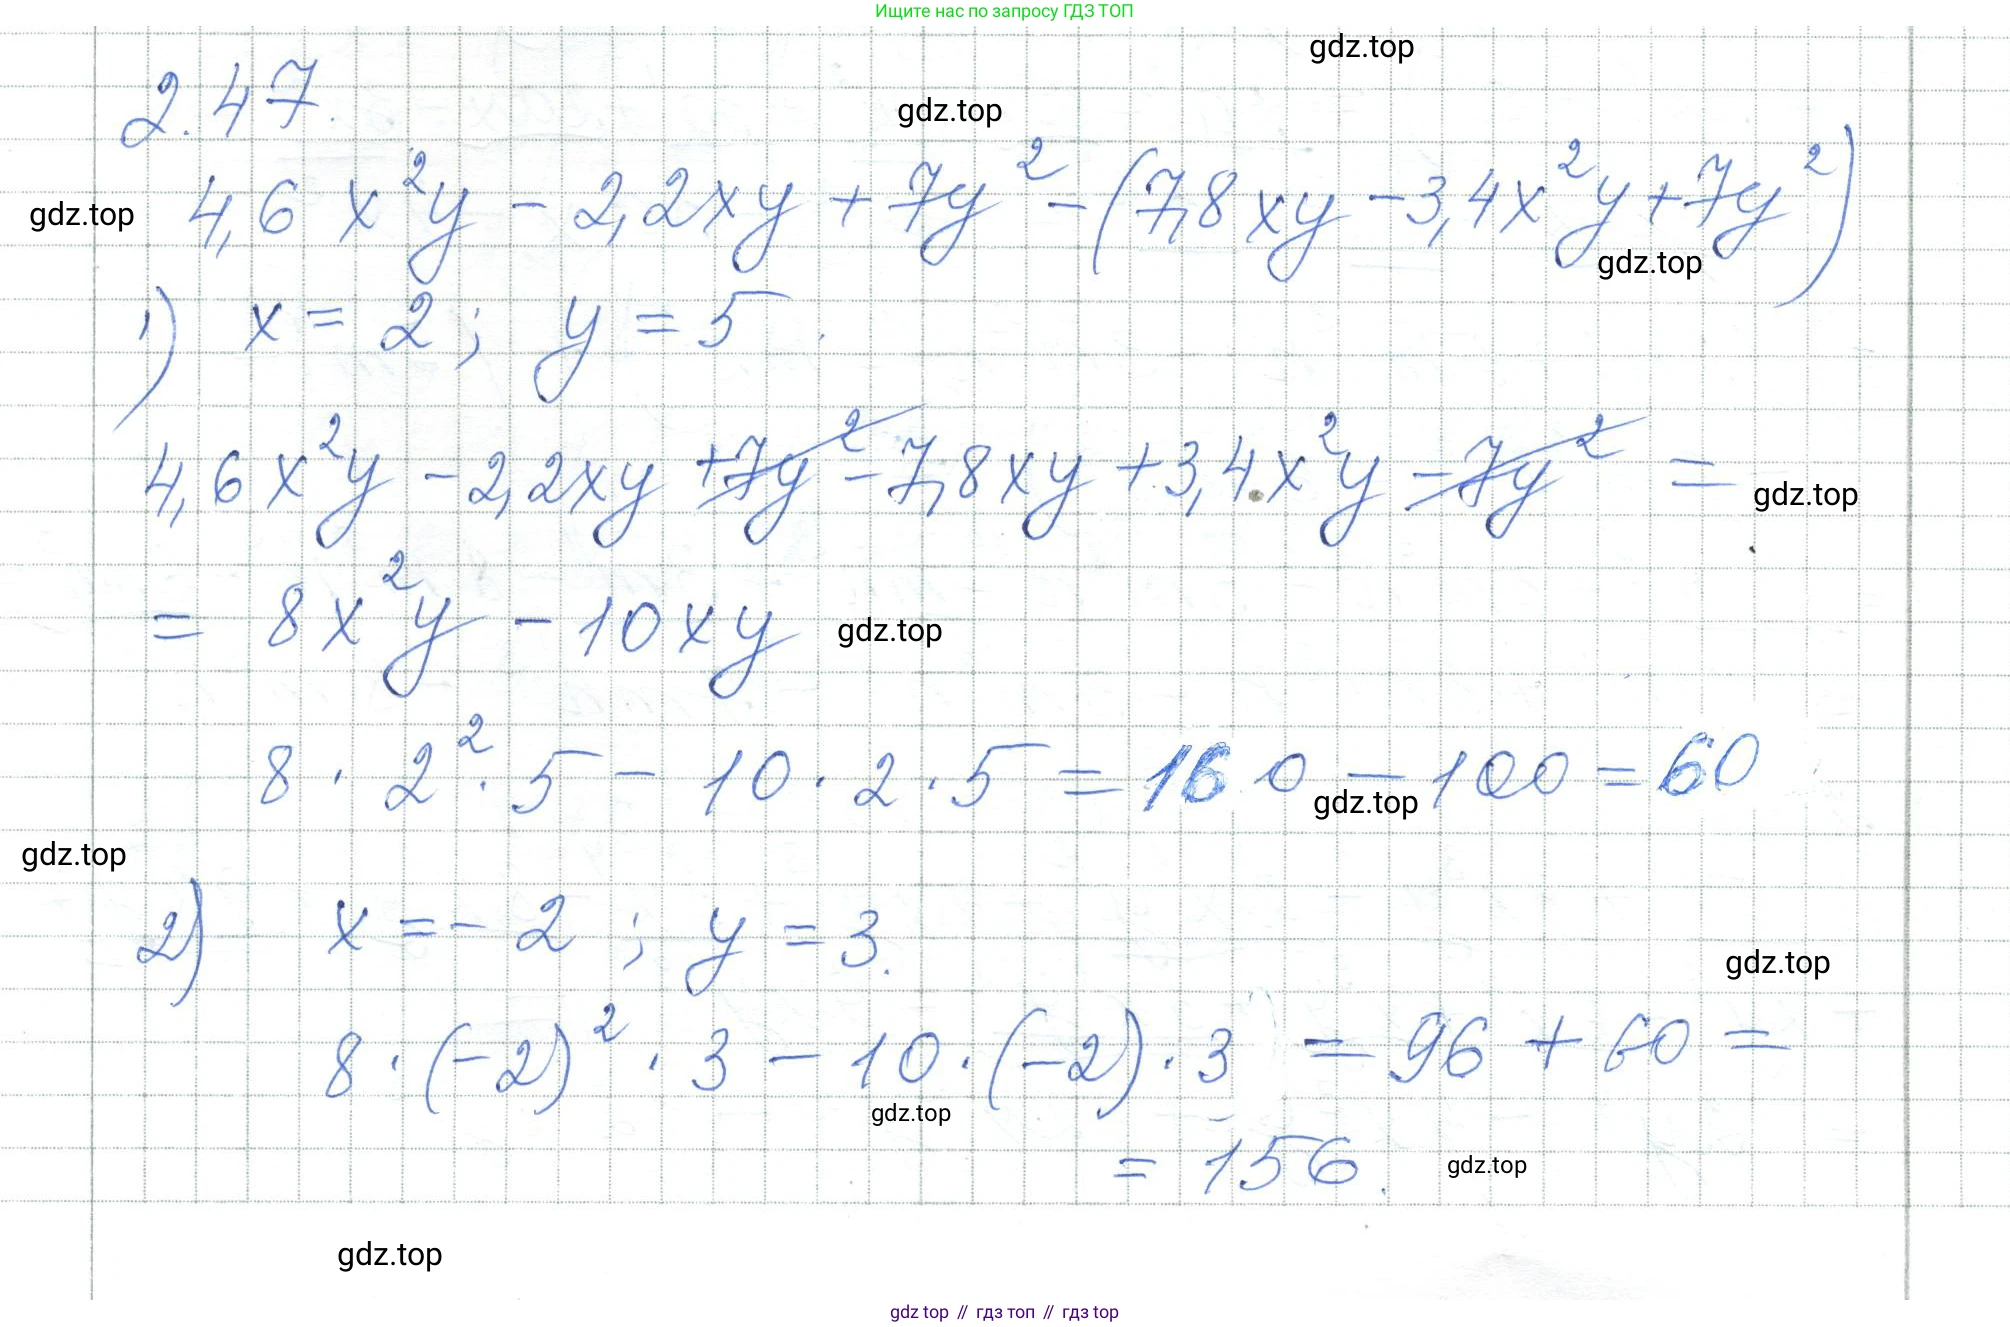 Ищите нас по запросу ГДЗ ТОП
gdz.top
2.47.
gdz.top
4,6 x²y - 2,2xy + 7y² - (7,8xy - 3,4x²y + 7y²)
gdz.top
gdz.top
1) x = 2; y = 5.
4,6x²y - 2,2xy + 7y² - 7,8xy + 3,4x²y - 7y² =
gdz.top
= 8x²y - 10xy
gdz.top
8 · 2² · 5 - 10 · 2 · 5 = 160 - 100 = 60
gdz.top
gdz.top
2) x = -2; y = 3.
gdz.top
8 · (-2)² · 3 - 10 · (-2) · 3 = 96 + 60 =
gdz.top
= 156.
gdz.top
gdz.top
gdz top // гдз топ // гдз top